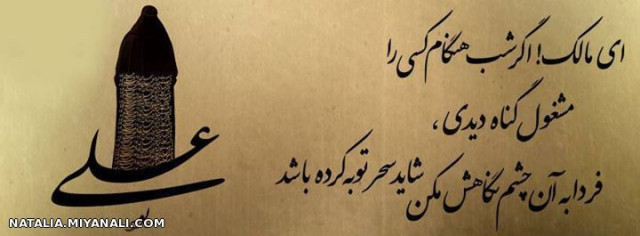 ای مالک! اگر شب هنگام کسی را
مشغول گناه دیدی،
فردا به آن چشم نگاهش مکن شاید سحر توبه کرده باشد
علی
NATALIA.MIYANALI.COM